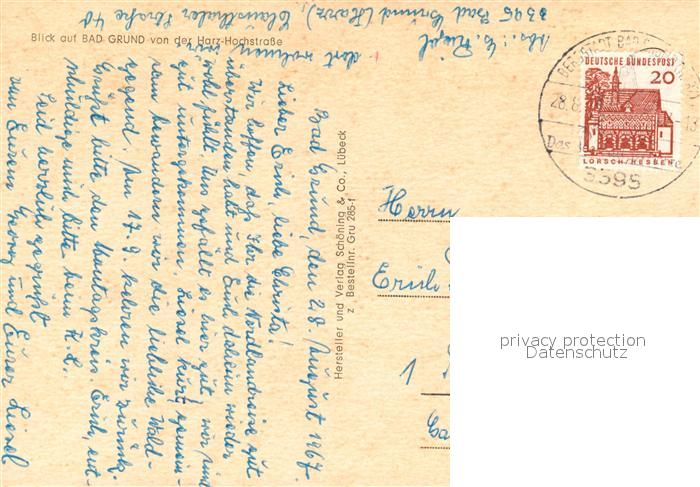 Blick auf BAD GRUND von der Harz-Hochstraße
Abs.: E. Riegl
3395 Bad Grund (Harz), Clausthaler Straße 40
dort wohnen wir
Bad Grund, den 28. August 1967.
Lieber Erich, liebe Christa!
Wir hoffen, daß Ihr die Nordlandreise gut
überstanden habt und Euch daheim wieder
wohl fühlt. Uns gefällt es hier gut, wir sind
gut untergekommen. Liesel kurt,
bewundern wir die liebliche Wald-
gegend. Am 17.9. kehren wir zurück.
Grüßt bitte den Montagskreis. Erich, ent-
schuldige mich bitte beim
Seid herzlich gegrüßt
von Eurem Georg und Eurer Liesel
Hersteller und Verlag Schöning & Co., Lübeck
Z Bestellnr. Gru 285-f
BERGSTADT BAD
28.8.
Das
3395
DEUTSCHE BUNDESPOST
20
LORSCH/HESSEN
Herrn
Erich
1
privacy protection
Datenschutz